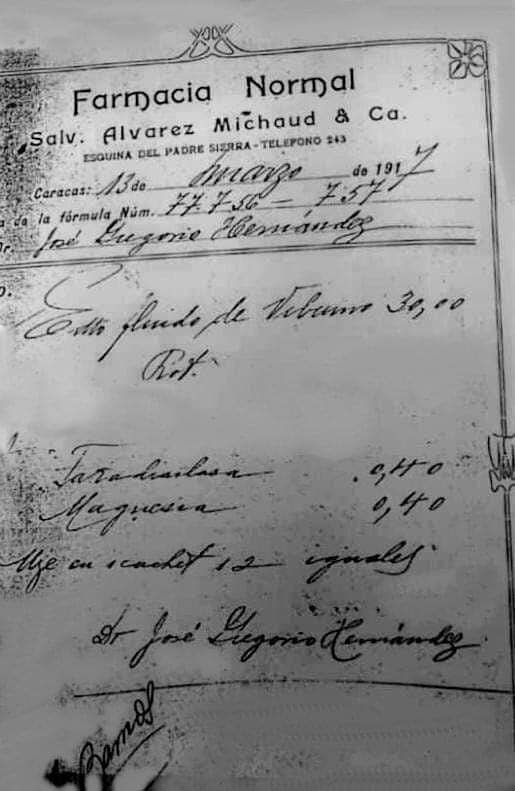 Farmacia Normal
Salv. Alvarez Michaud & Ca.
ESQUINA DEL PADRE SIERRA - TELEFONO 243
Caracas: 13 de marzo de 1917
a de la fórmula Núm. 77.756 - 757
Dr. José Gregorio Hernández
Exto fluido de Viburno 30,00
Rot.
0,40
Magnesia 0,40
en cachet 12 iguales
Dr José Gregorio Hernández
Ramos